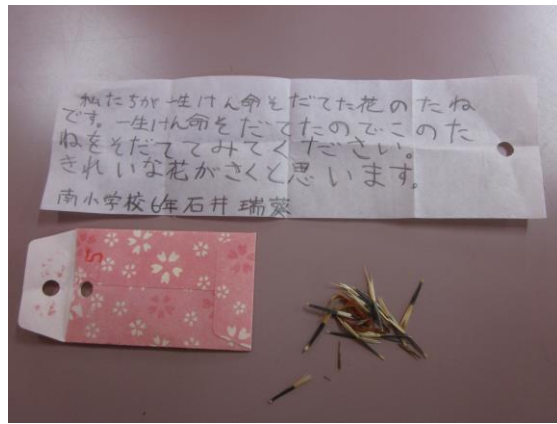 私たちが一生けん命そだてた花のたね
です。一生けん命そだてたのでこのた
ねをそだててみてください。
きれいな花がさくと思います。
南小学校6年石井瑞葵
5